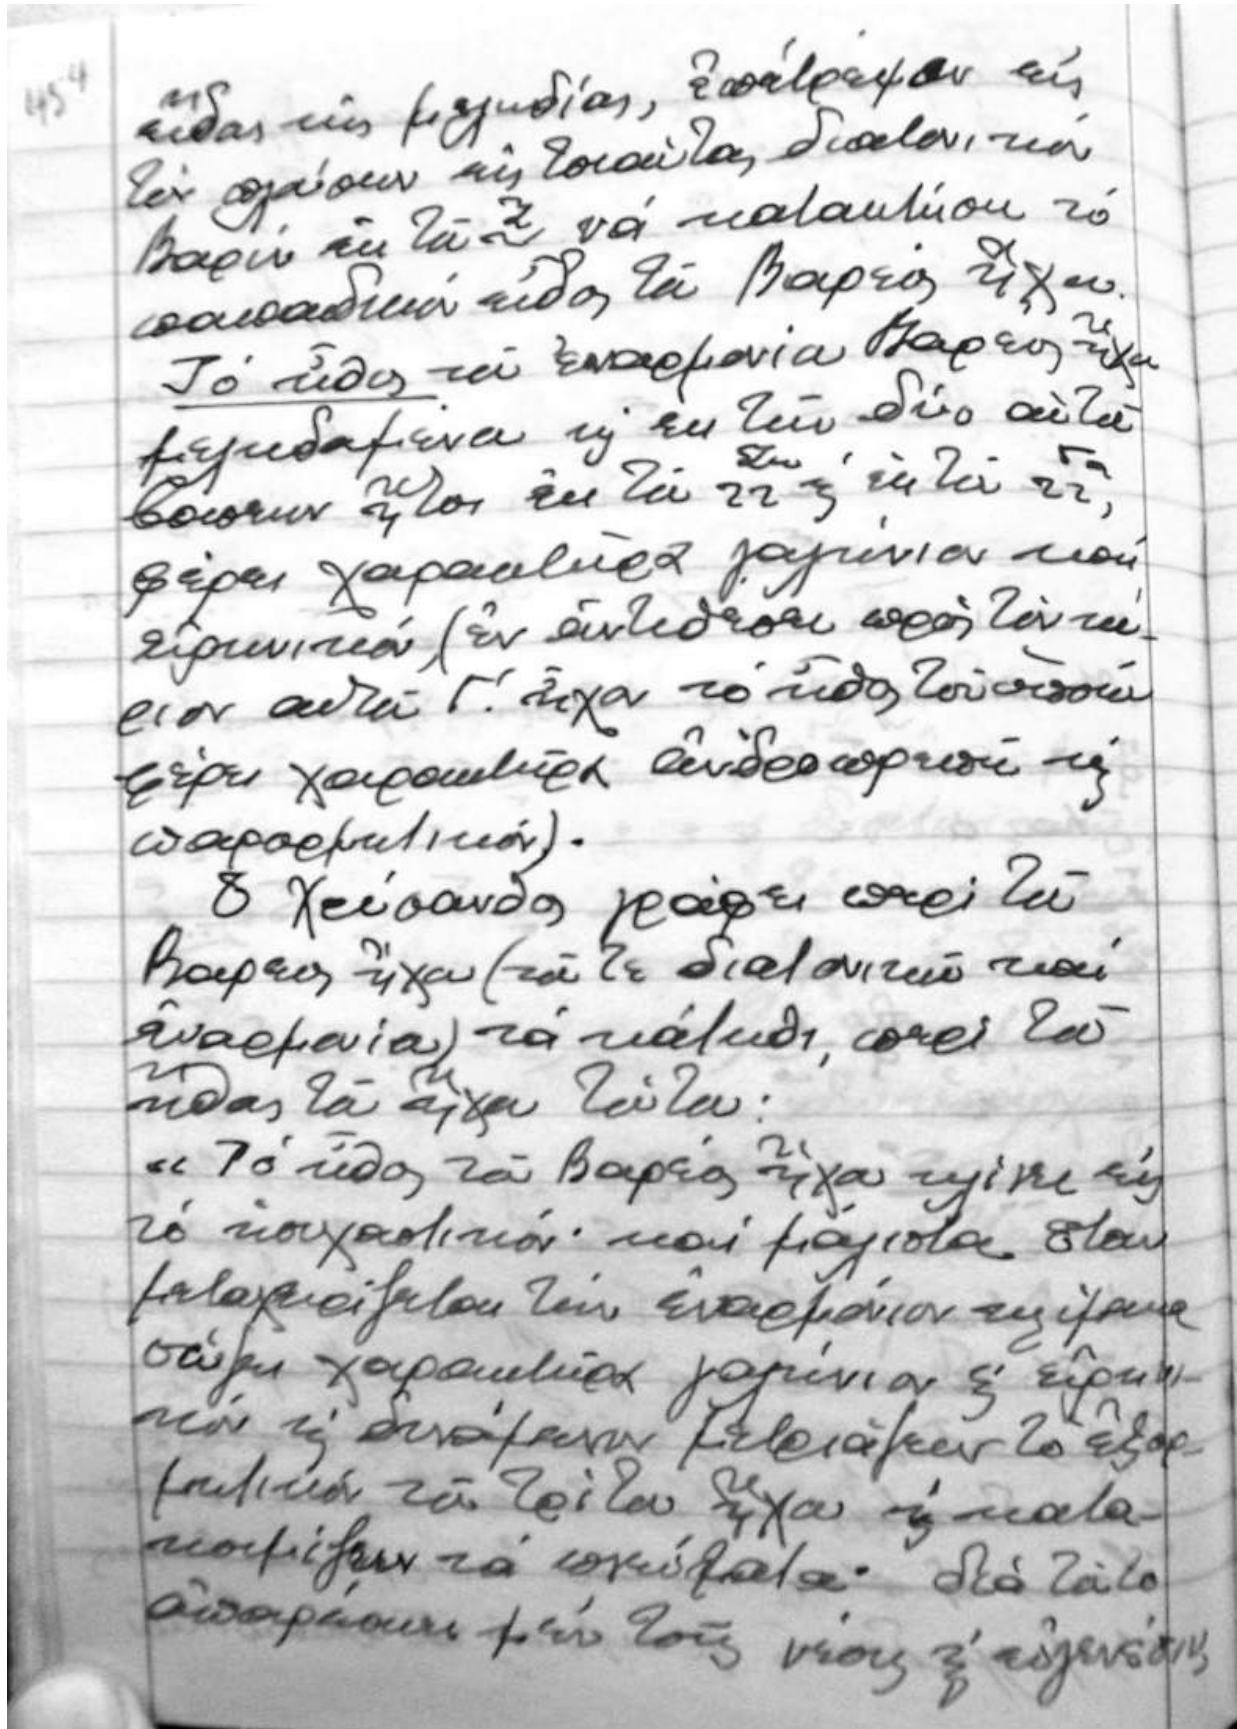 454
εἶδος τῆς μελῳδίας, ἐπέτρεψαν εἰς
τὸν πλαίσιον τῆς τοιαύτης διατονικὸν
Βαρὺν ἐκ τοῦ Ζω νά καταντήσῃ τό
παπαδικόν εἶδος τοῦ Βαρέος ἤχου.
Τό ἦθος τοῦ ἐναρμονίου Βαρέος ἤχου
μελῳδουμένου καὶ ἐκ τῶν δύο αὐτοῦ
βάσεων ἤτοι ἐκ τοῦ Ζω καὶ ἐκ τοῦ Γα,
φέρει χαρακτῆρα γαλήνιον καί
εἰρηνικόν, (ἐν ἀντιθέσει πρὸς τὸν κύ-
ριον αὐτοῦ Γ΄. ἦχον τό ἦθος τοῦ ὁποίου
φέρει χαρακτῆρα ἀνδροπρεπῆ καὶ
παρορμητικόν).
Ὁ Χρύσανθος γράφει περί τοῦ
Βαρέος ἤχου (τοῦ τε διατονικοῦ καί
ἐναρμονίου) τά κάτωθι, περί τοῦ
ἤθους τοῦ ἤχου τούτου:
«Τό ἦθος τοῦ Βαρέος ἤχου κλίνει εἰς
τό ἡσυχαστικόν· καί μάλιστα ὅταν
μεταχειρίζεται τήν ἐναρμόνιον κλίμακα
σώζει χαρακτῆρα γαλήνιον καὶ εἰρηνι-
κόν καὶ δυνάμενον μετριάζειν τὸ ἐξορ-
μητικόν τοῦ τρίτου ἤχου καὶ κατα-
κοιμίζειν τά πνεύματα· διά τοῦτο
ἀπαρέσκει μέν τοῖς νέοις καὶ εὐγενέσιν